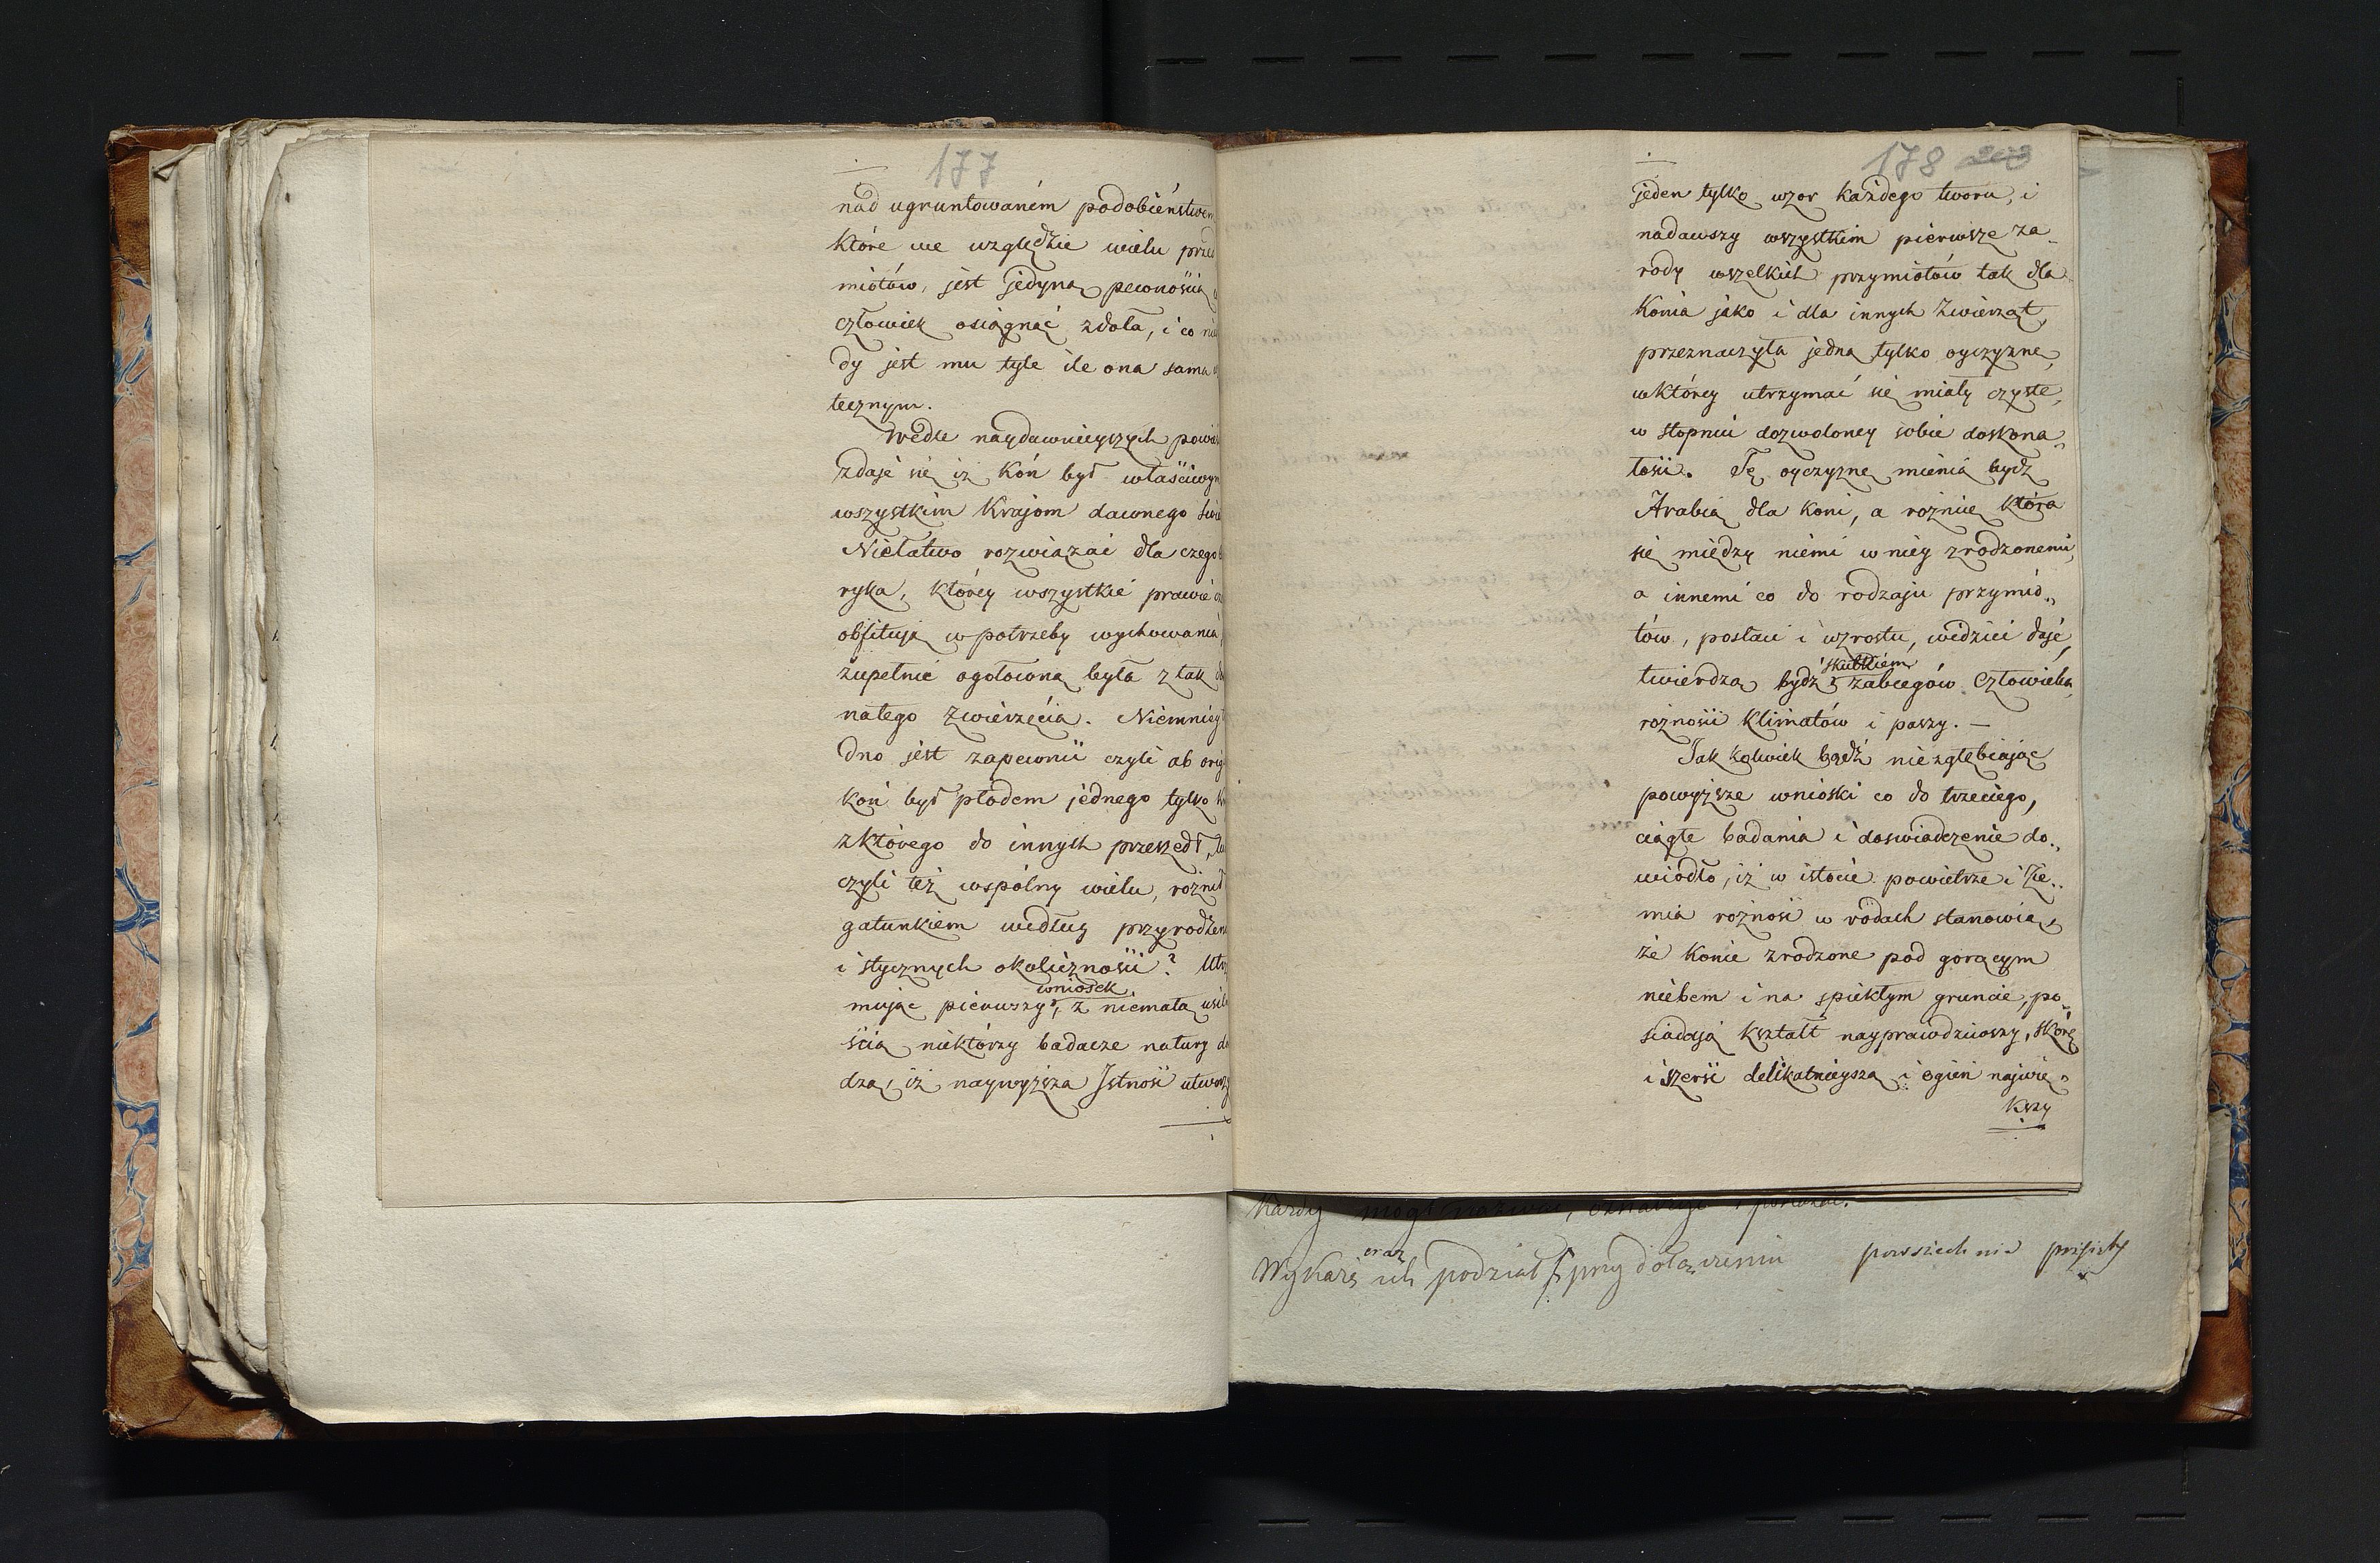 177
nad ugruntowaném podobieństwem
które we względzie wielu przed
miotów, jest jedyną pewnością
człowiek osiągnąć zdoła, i co
dy jest mu tyle ile ona sama
tecznym.
Wedle naydawnieyszych
zdaje się iż Koń był właściwym
wszystkim Krajom dawnego
Niełatwo rozwiązać dla czego
ryka, którey wszystkie prawie
obfitują w potrzeby wychowania,
zupełnie ogołoconą była z tak
nałego Zwierzęcia. Niemniey
dno jest zapewnić czyli ab
koń był płodem jednego tylko
z którego do innych przeszedł,
czyli też wspólny wielu,
gatunkiem według
i stycznych okoliczności?
wniosek
mując pierwszy, z niemałą
ścią niektórzy badacze natury
dzą, iż naywyższa Istność
178
jeden tylko wzor każdego tworu, i
nadawszy wszystkim pierwsze za-
rody wszelkich przymiotów tak dla
Konia jako i dla innych Zwierząt,
przeznaczyła jedną tylko oyczyznę,
w którey utrzymać się miały czyste,
w stopniu dozwoloney sobie doskona„
łości. Tę oyczyznę mienią bydź
Arabią dla koni, a roznicę która
się między niémi w niey zrodzonemi,
a innemi co do rodzaju przymio„
tów, postaci i wzrostu, widzieć daje,
skutkiem
twierdzą bydź zabiegów Człowieka,
rożności klimatów i paszy. —
Jak kolwiek bądź nie zgłębiając
powyższe wnioski co do trzeciego,
ciągłe badania i doswiadczenie do„
wiodło, iż w istocie powietrze i Zie„
mia rożność w rodach stanowią,
że Konie zrodzone pod gorącym
niebem i na spiekłym gruncie, po„
siadają kształt nayprawdziwszy, skórę
i szerść delikatnieyszą i ogień najwię„
kszy
Każdy mógł
oraz
Wykażę ich podział przy dołączeniu powszechnie przyjęty